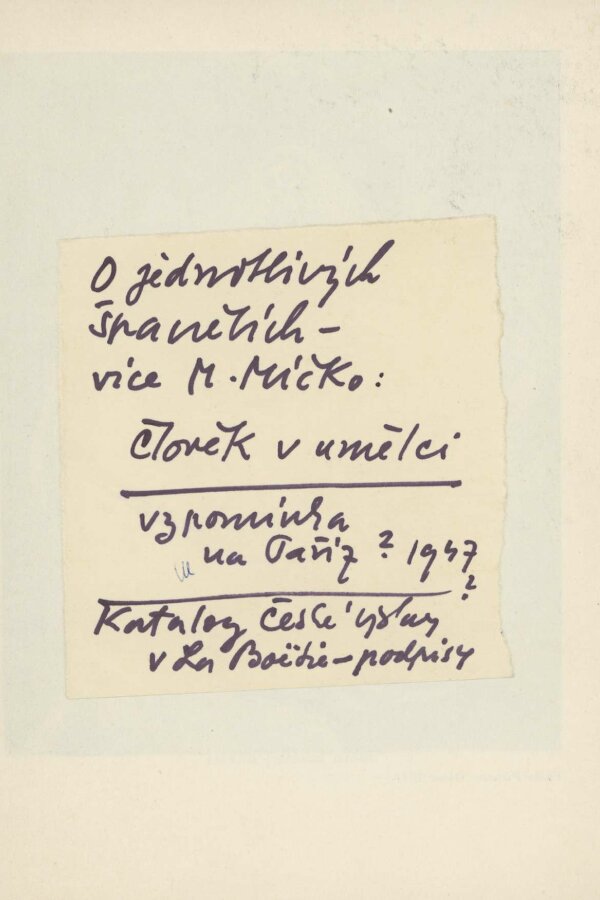 O jednotlivých
španělích –
více M. Míčko:
Člověk v umělci
vzpomínka
na Paříž ? 1947
?
Katalog České výstavy
v La Boëtie – podpisy